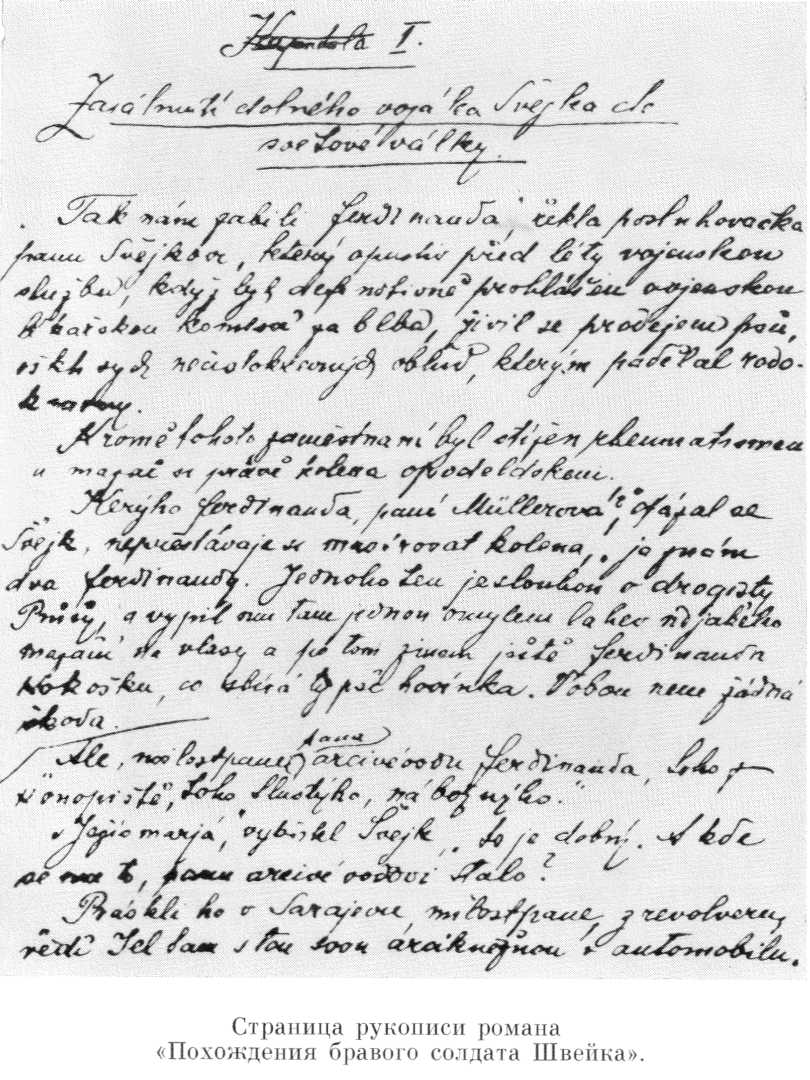 Kapitola I.
Zasáhnutí dobrého vojáka Švejka do
světové války.
„Tak nám zabili Ferdinanda", řekla posluhovačka
panu Švejkovi, který opustiv před léty vojenskou
službu, když byl definitivně prohlášen vojenskou
lékařskou komisí za blba, živil se prodejem psů,
ošklivých nečistokrevných oblud, kterým padělal rodo-
kmeny.
Kromě tohoto zaměstnání byl stižen rheumatismem
a mazal si právě kolena opodeldokem.
„Kerýho Ferdinanda, paní Müllerová?", otázal se
Švejk, nepřestávaje si masírovat kolena, „já znám
dva Ferdinandy. Jednoho, ten je sloužou u drogisty
Průši, a vypil mu tam jednou omylem lahev nějakého
mazání na vlasy a potom znám ještě Ferdinanda
Kokošku, co sbírá ty psí hovínka. Vobou není žádná
škoda.
Ale, milostpane, pana arcivévodu Ferdinanda, toho z
Konopiště, toho tlustýho, nábožnýho."
„Ježíšmarjá", vybafl Švejk, „to je dobrý. A kde
se mu to, panu arcivévodovi stalo?
Práskli ho v Sarajevu, milostpane, z revolveru,
vědí. Jel tam s tou svou arcikněžnou v automobilu.
Страница рукописи романа
«Похождения бравого солдата Швейка».